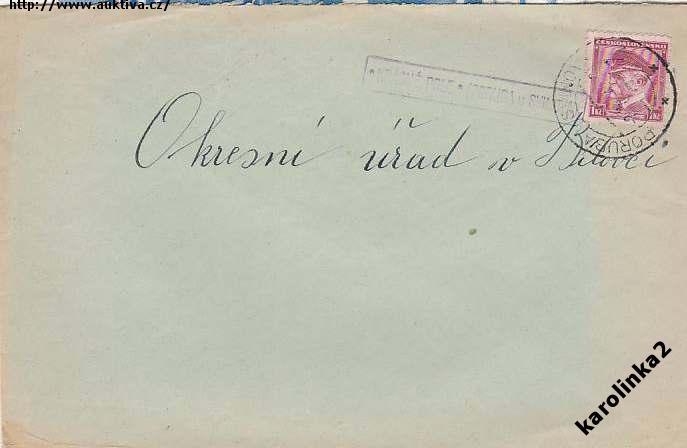 http://www.auktiva.cz/
ČESKOSLOVENSKO
1Kč
PORUBA
Okresní úřad v Bílovci
karolinka2